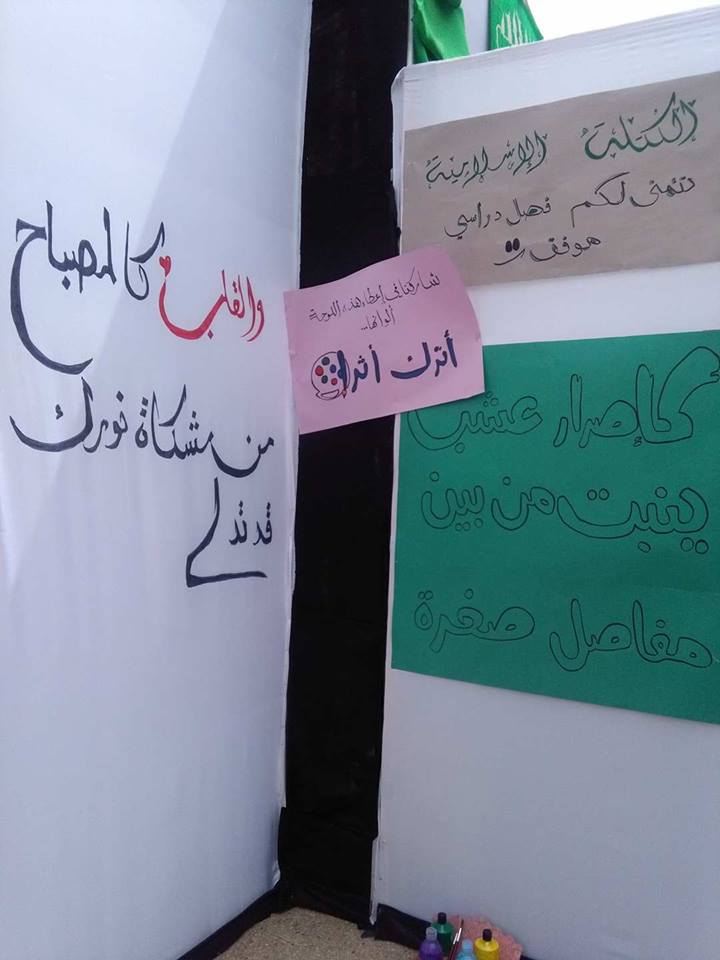 الكتلة الإسلامية
تتمنى لكم فصل دراسي
موفق
شاركنا في إعطاء هذه اللوحة
ألوانها..
أترك أثرا
كإصرار عشب
ينبت من بين
مفاصل صخرة
والقلب كالمصباح
من مشكاة نورك
قد تدلى